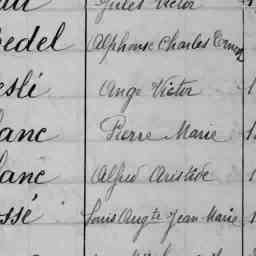 Jules Victor
edel Alphonse Charles Ernest
eslé Ange Victor
anc Pierre Marie
anc Alfred Aristide
ssé Louis Augte Jean Marie